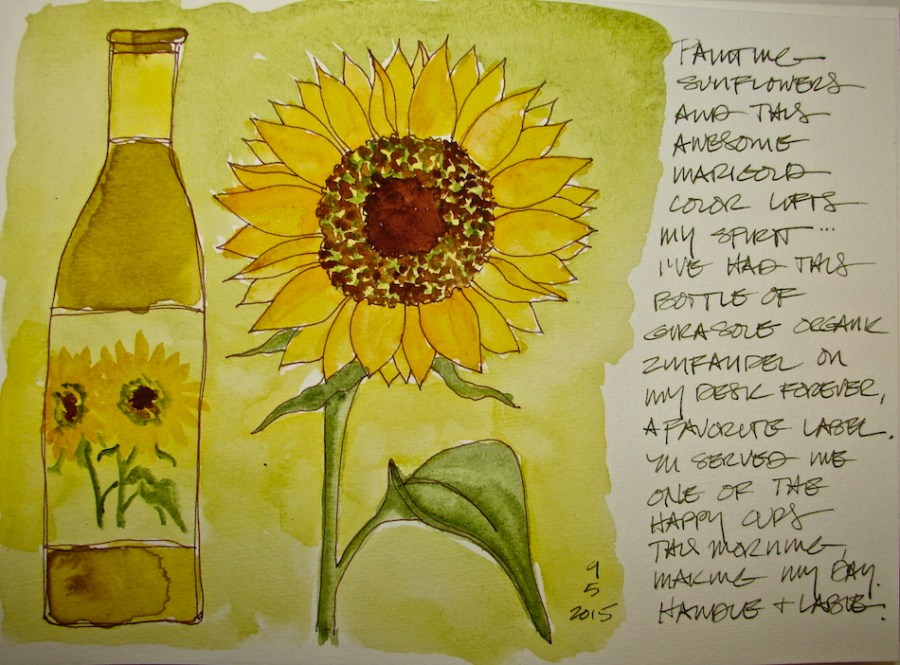 PAINTING
SUNFLOWERS
AND THIS
AWESOME
MARIGOLD
COLOR LIFTS
MY SPIRIT...
I'VE HAD THIS
BOTTLE OF
GIRASOLE ORGANIC
ZINFANDEL ON
MY DESK FOREVER,
A FAVORITE LABEL.
SERVED ME
ONE OF THE
HAPPY CUPS
THIS MORNING,
MAKING MY DAY.
HANDLE + LABLE.
9
5
2015